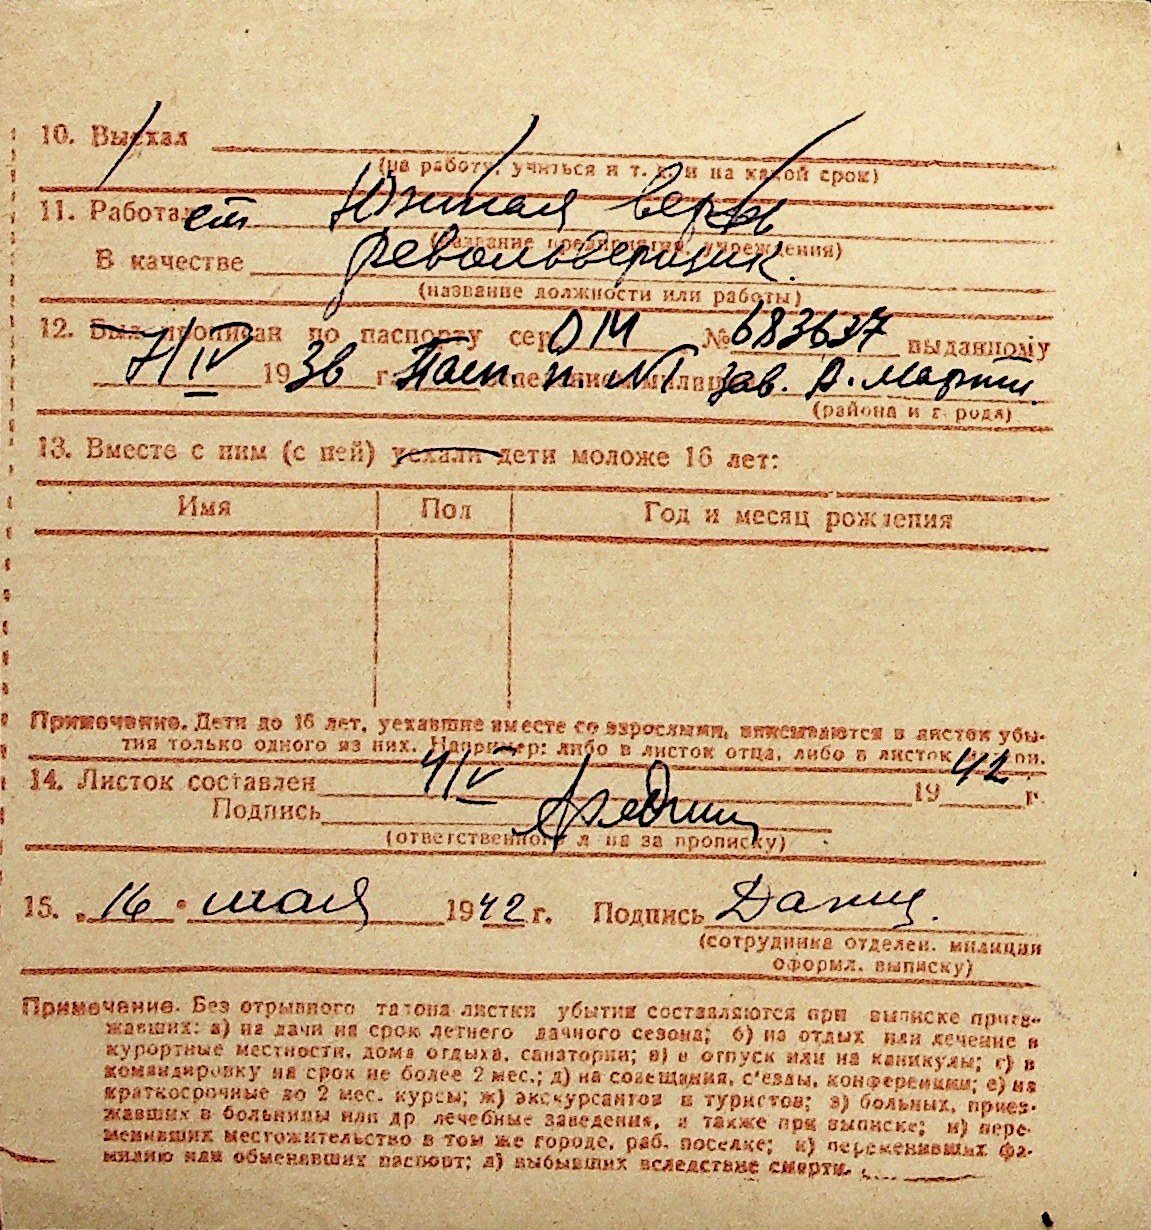 10. Выехал
(на работу, учиться и т. п. и на какой срок)
11. Работает Южная верфь
(название предприятия, учреждения)
В качестве револьверщик.
(название должности или работы)
12. Был прописан по паспорту сер. ОМ № 683637 выданному
7/IV 1936 г. Пасп. п. №1 зав. А. Марти.
(района и города)
13. Вместе с ним (с ней) уехали дети моложе 16 лет:
Имя Пол Год и месяц рождения
Примечание. Дети до 16 лет, уехавшие вместе со взрослыми, вписываются в листок убы-
тия только одного из них. Например: либо в листок отца, либо в листок матери.
14. Листок составлен 4/V 1942 г.
Подпись
(ответственного лица за прописку)
15. „16" мая 1942 г. Подпись
(сотрудника отделен. милиции
оформл. выписку)
Примечание. Без отрывного талона листки убытия составляются при выписке приез-
жавших: а) на дачи на срок летнего дачного сезона; б) на отдых или лечение в
курортные местности, дома отдыха, санатории; в) в отпуск или на каникулы; г) в
командировку на срок не более 2 мес.; д) на совещания, с'езды, конференции; е) на
краткосрочные до 2 мес. курсы; ж) экскурсантов и туристов; з) больных, приез-
жавших в больницы или др. лечебные заведения, а также при выписке; и) пере-
менивших местожительство в том же городе, раб. поселке; к) переменивших фа-
милию или обменявших паспорт; л) выбывших вследствие смерти.